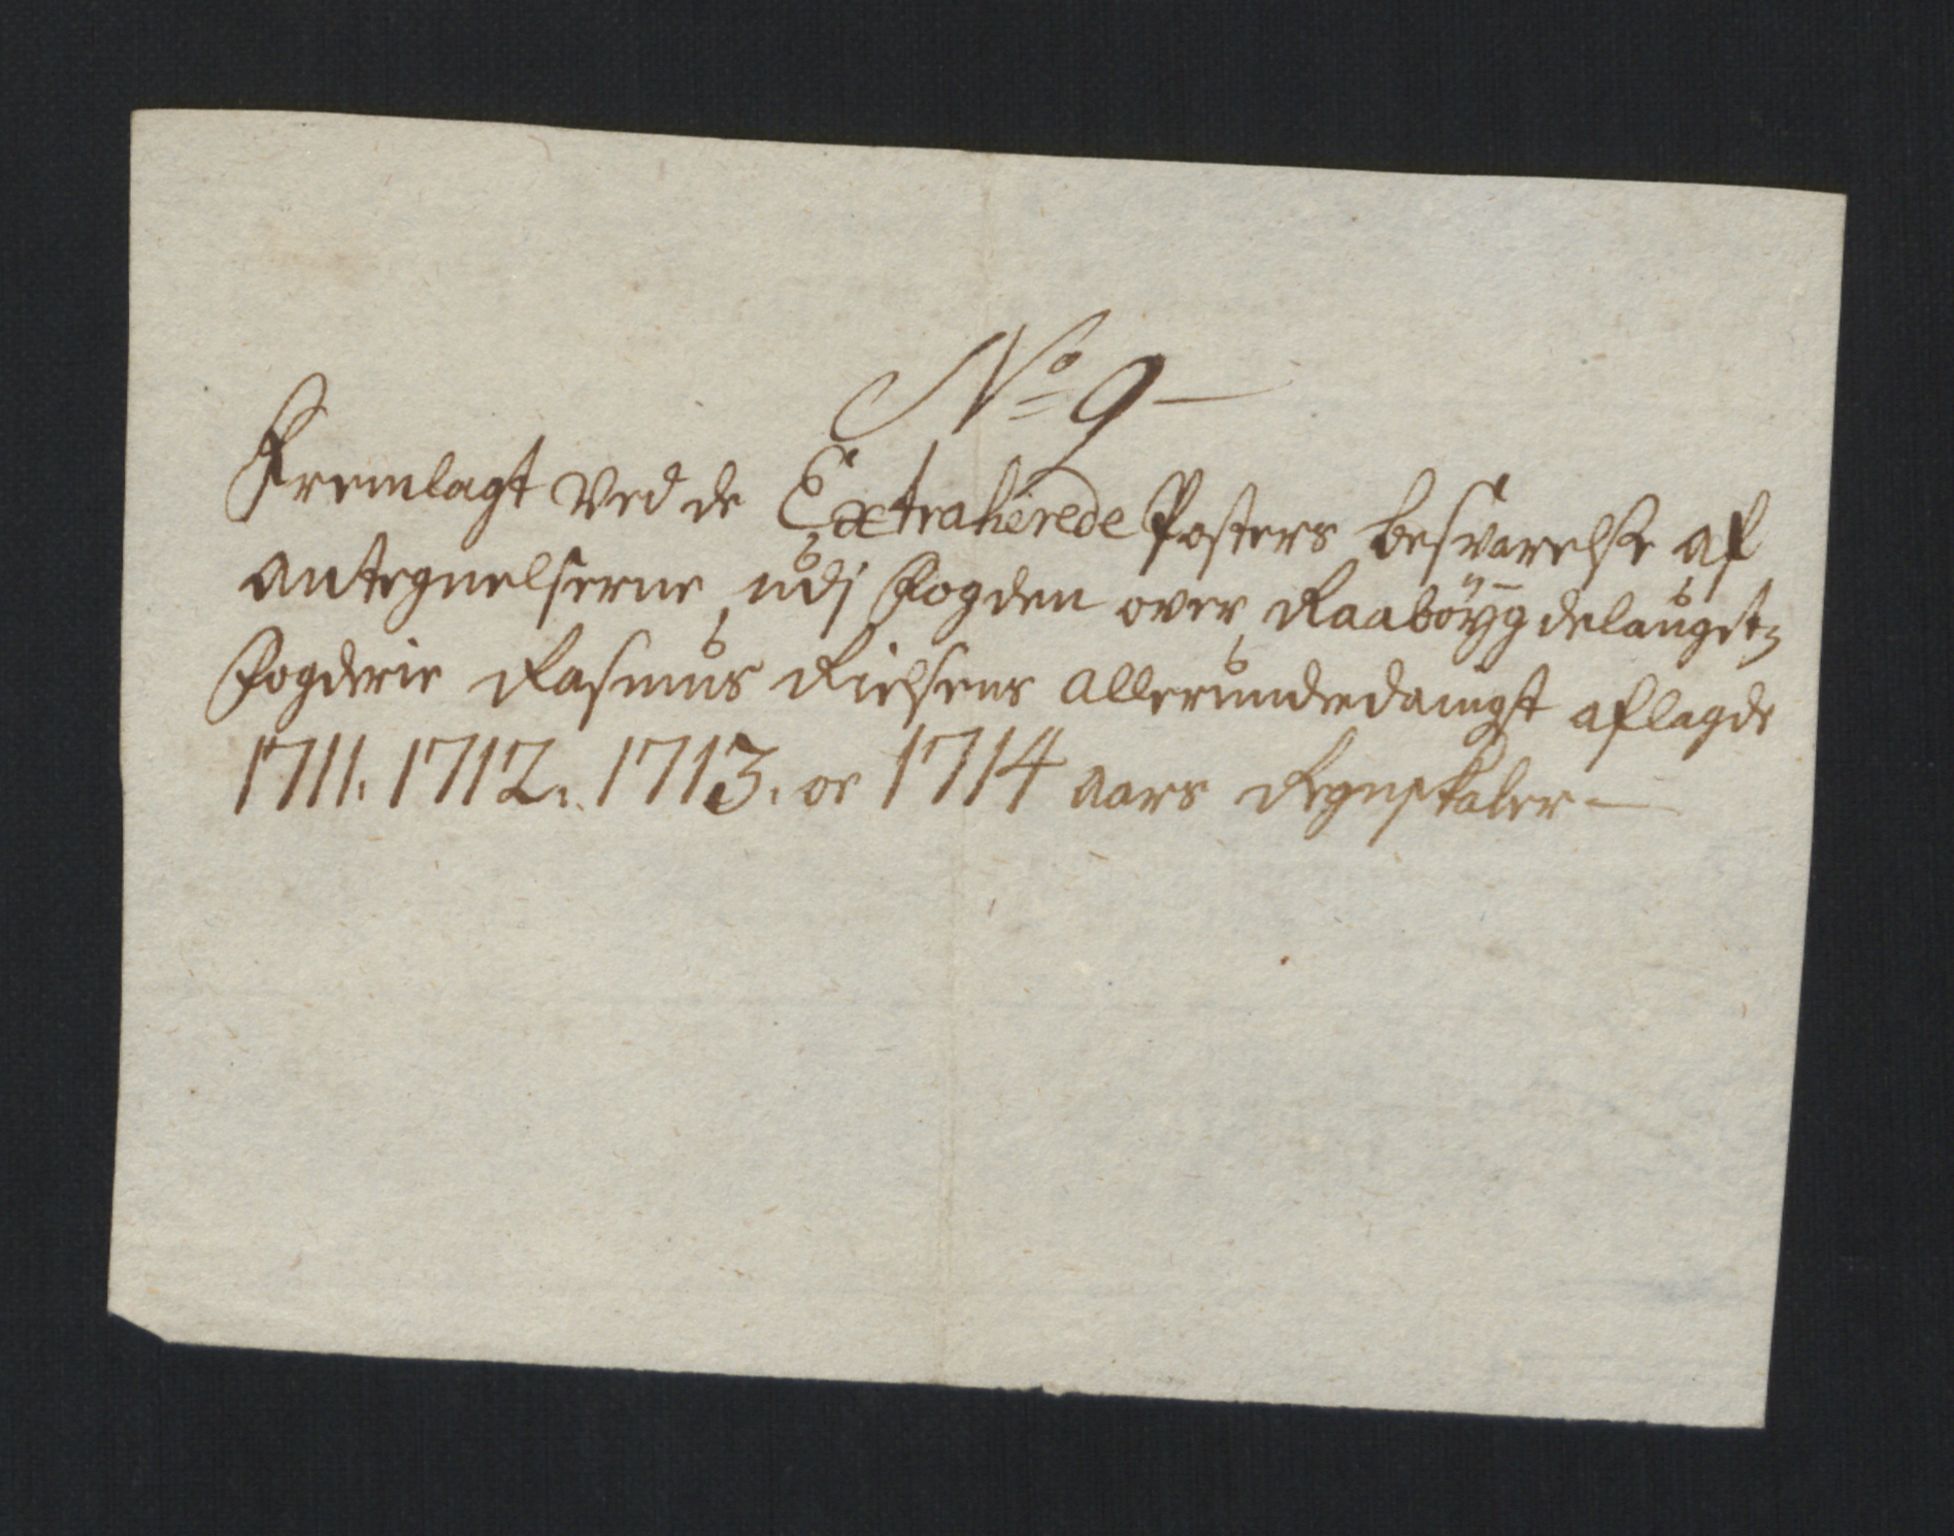 No 9 –
Fremlagt Ved de Extraherede Posters besvarelse af
antegnelserne, udj Fogden over Raabøygdelaugetz
Fogderie Rasmus Nielsens allerunderdanigst aflagde
1711. 1712. 1713. oc 1714 aars Regnskaber –